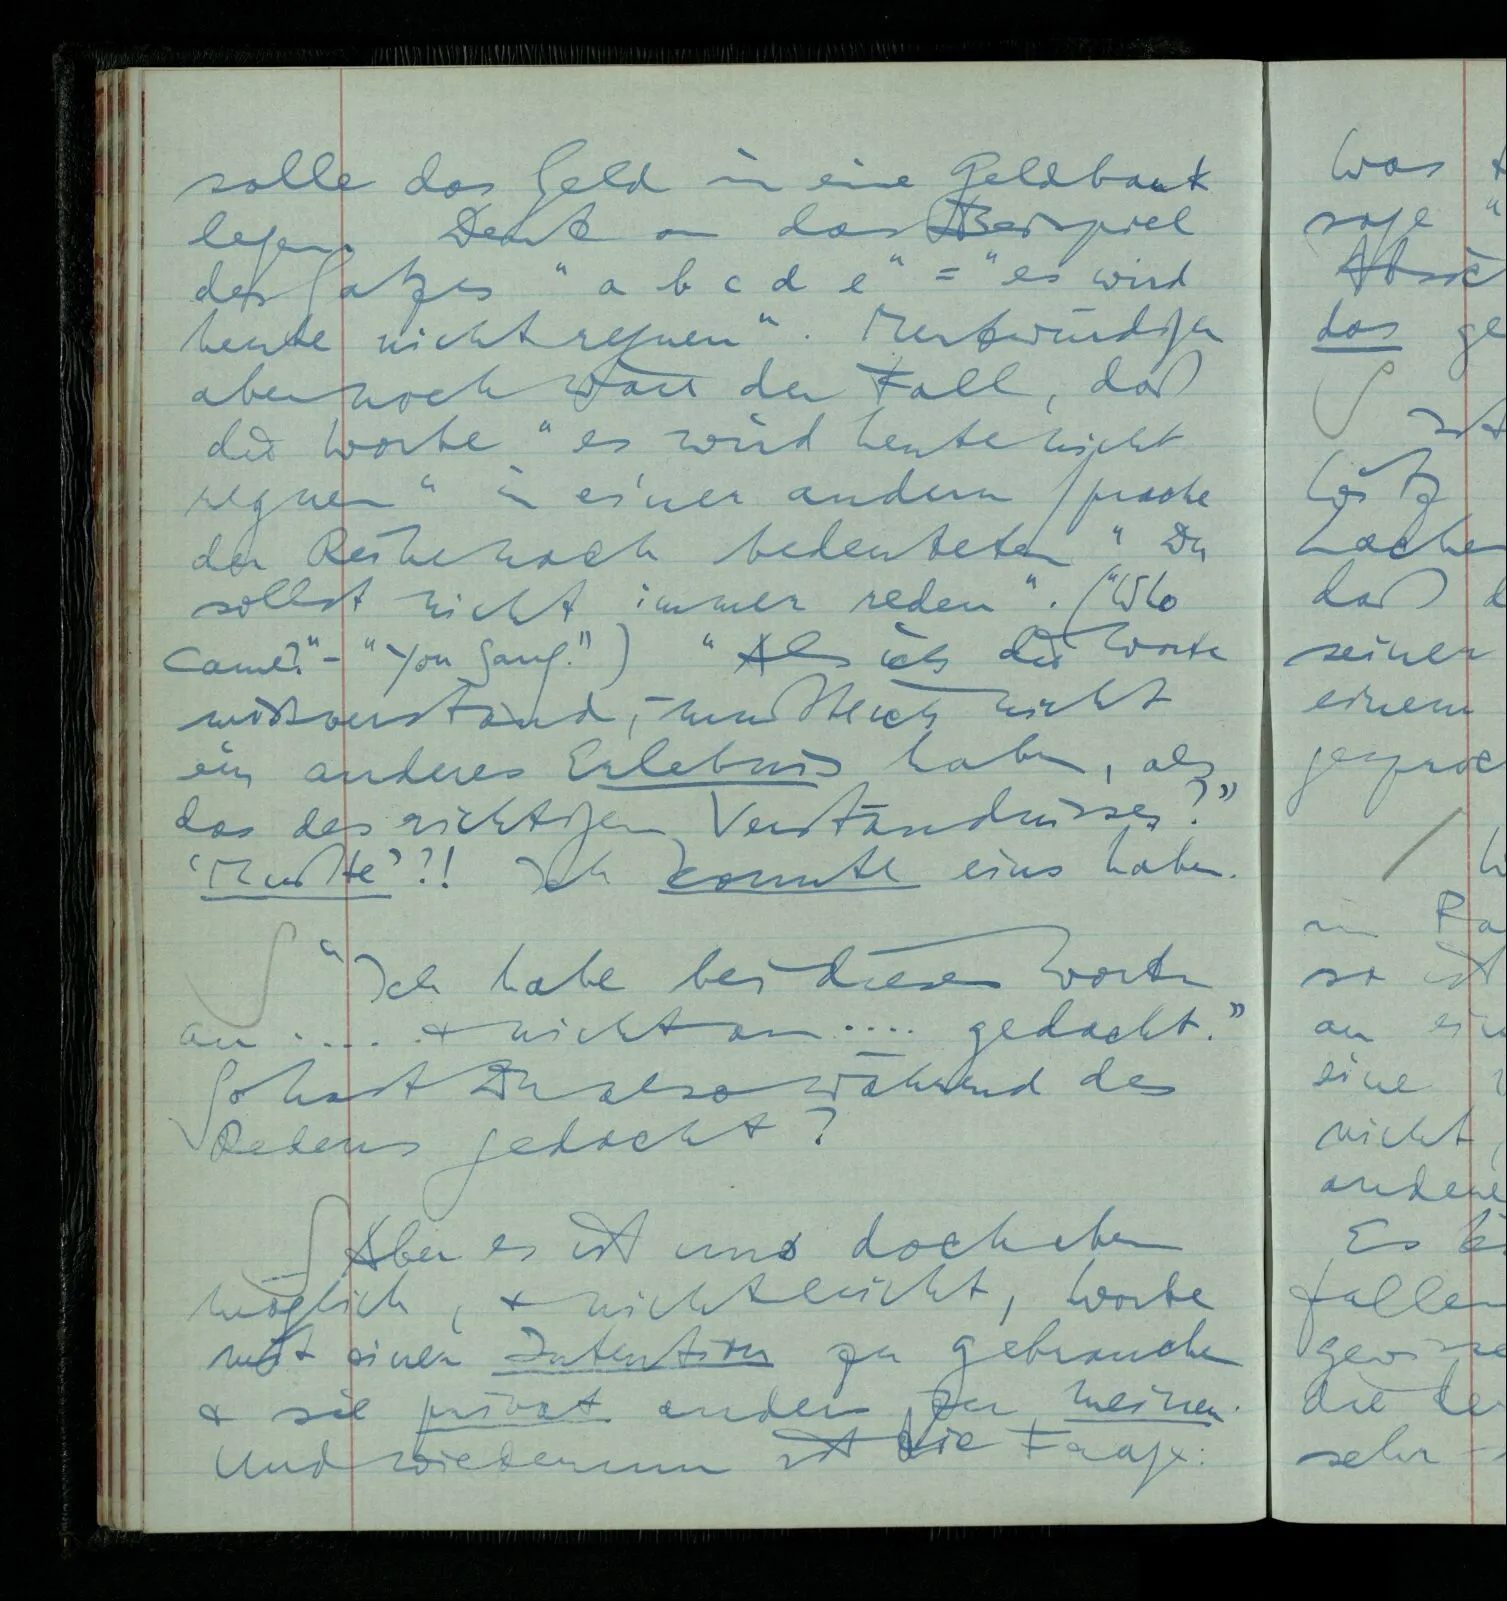 solle das Geld in eine Geldbank
legen. Denk an das Beispiel
des Satzes "a b c d e" = "es wird
heute nicht regnen". Merkwürdiger
aber noch wäre der Fall, daß
die Worte "es wird heute nicht
regnen" in einer andern Sprache
der Reihe nach bedeuteten "Du
sollst nicht immer reden". ("Who
came?" – "You Gang.") "Als ich die Worte
mißverstand, – mußte ich nicht
ein anderes Erlebnis haben, als
das des richtigen Verständnisses?"
'Mußte'?! Ich konnte eins haben.
"Ich habe bei diesen Worten
an .... & nicht an .... gedacht."
So hast Du also während des
Redens gedacht?
Aber es ist uns doch eben
möglich, & nicht leicht, Worte
mit einer Intention zu gebrauchen
& sie privat anders zu meinen.
Und wiederum ist die Frage:
Was
sage "
das ge
Witz
Lachen
daß d
seiner
einem
gesproc
in
so ist
an ein
eine
nicht,
andere
Es
fallen
gewisse
die
sehr